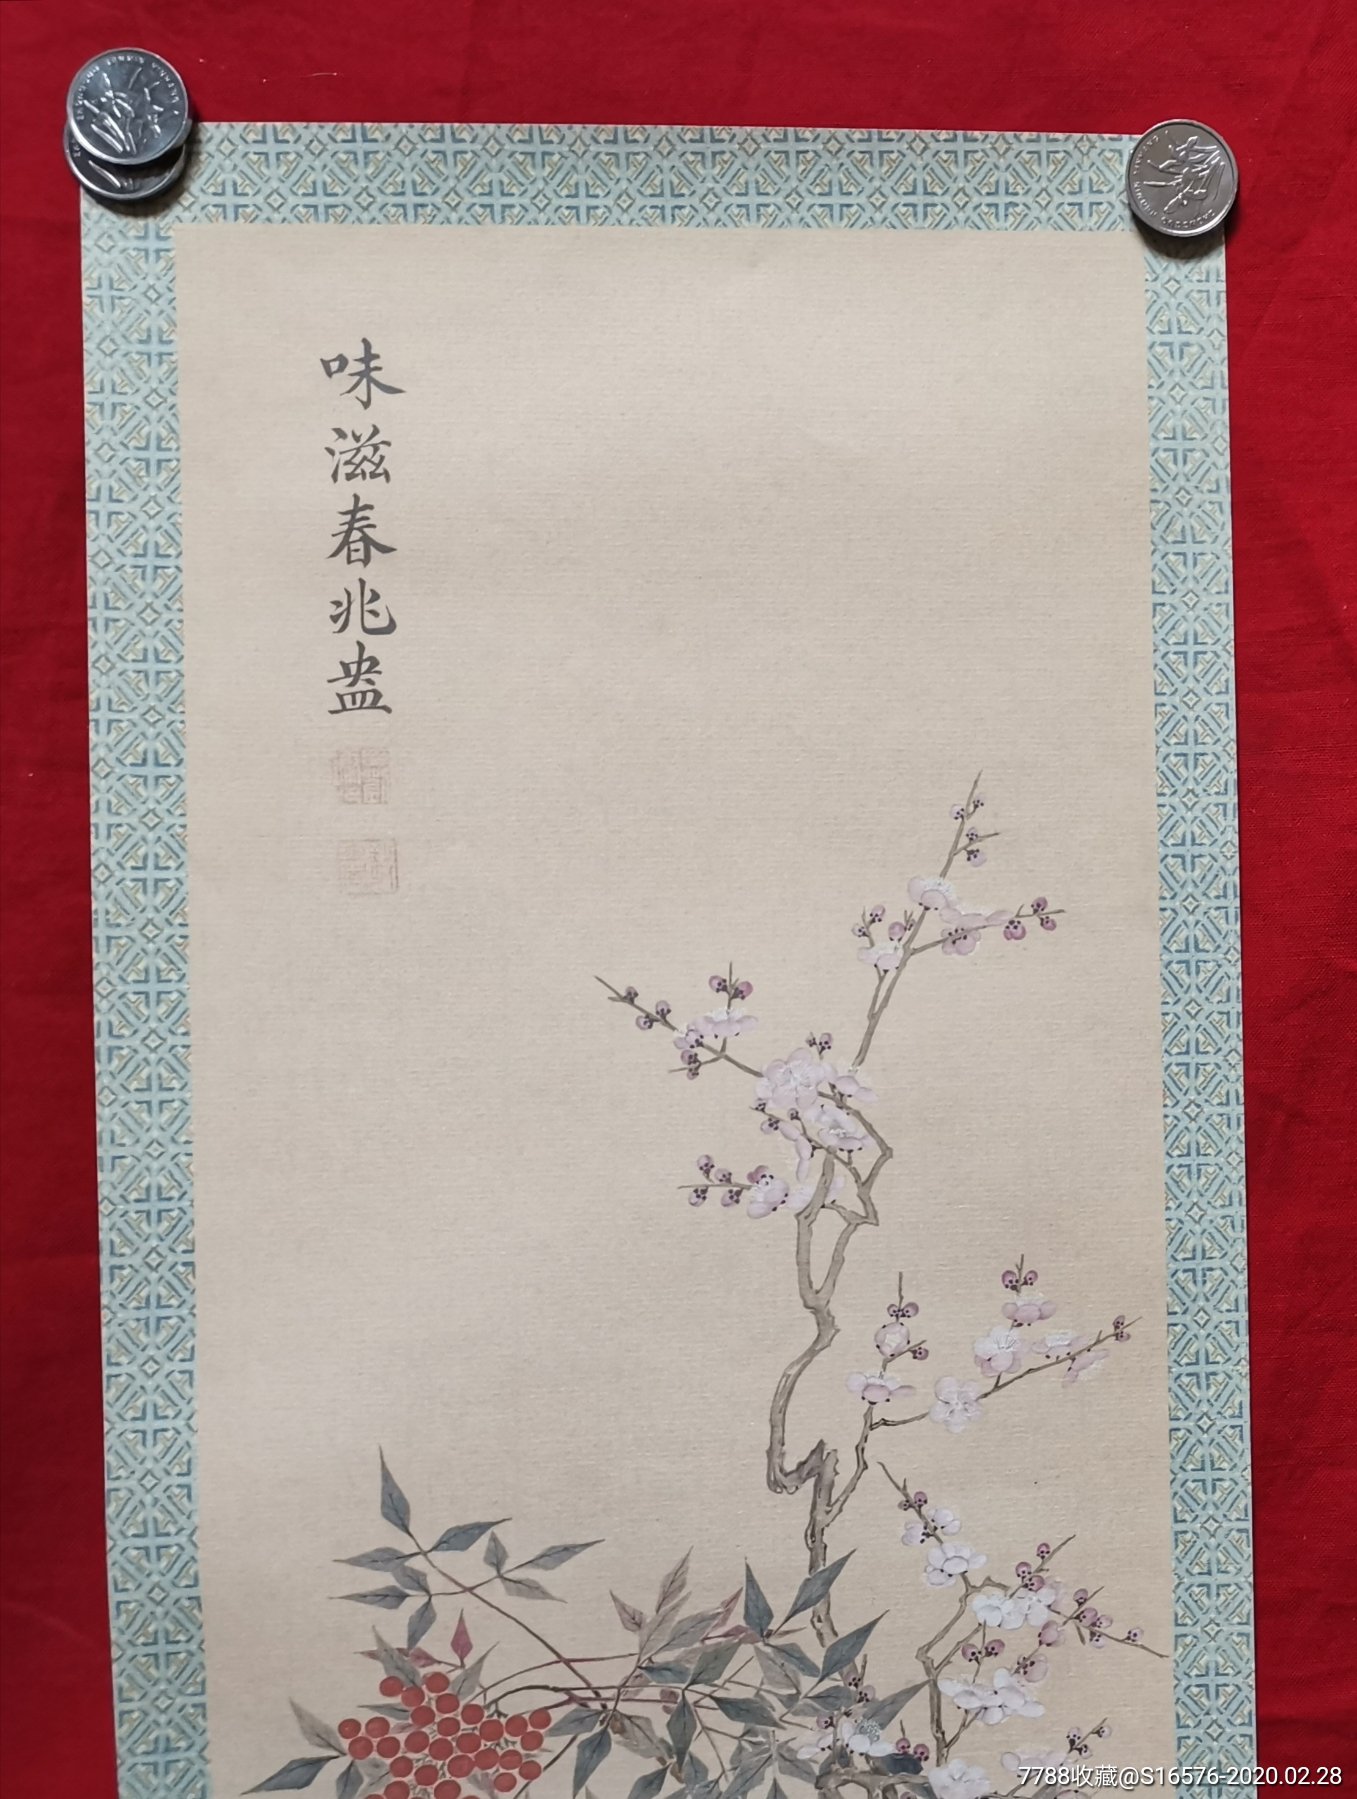 味滋春兆盎
7788收藏@S16576-2020.02.28